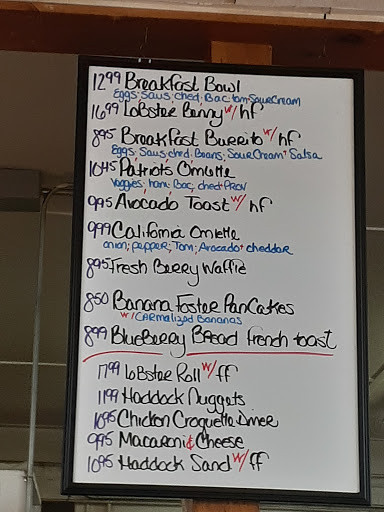 12.99 Breakfast Bowl
Eggs, Saus, ched, Bac, tom, Sour Cream
16.99 Lobster Benny w/ hf
8.95 Breakfast Burrito w/ hf
Eggs, Saus, ched, Beans, Sour Cream + Salsa
10.45 Patriots Omlette
Veggies, ham, Bac, ched + PROV
9.95 Avocado Toast w/ hf
9.99 California Omlette
onion, pepper, Tom, Avocado + cheddar
8.95 Fresh Berry Waffle
8.50 Banana Foster PanCakes
w/ CARmalized Bananas
8.99 BlueBerry Bread french toast
17.99 Lobster Roll w/ ff
11.99 Haddock Nuggets
10.95 Chicken Croquette Diner
9.95 Macaroni & Cheese
10.95 Haddock Sand w/ ff